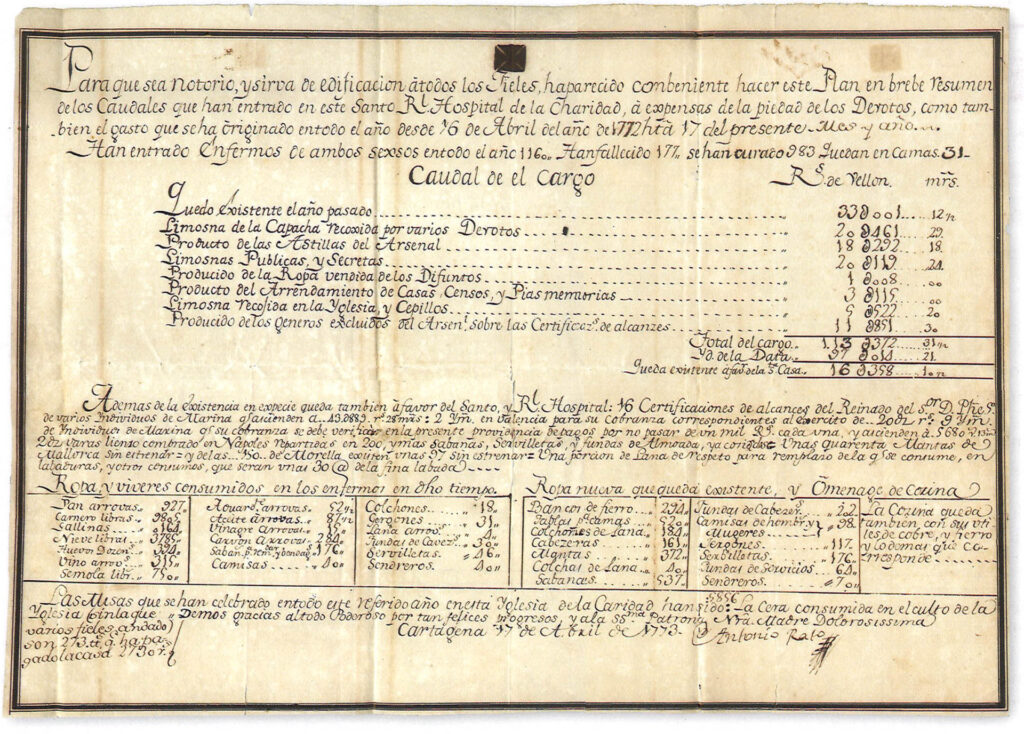 Para que sea notorio, y sirva de edificacion à todos los Fieles, ha parecido combeniente hacer este Plan, en brebe resumen
de los Caudales que han entrado en este Santo, Rl Hospital de la Charidad, à expensas de la piedad de los Devotos, como tam-
bien el gasto que se ha originado en todo el año desde 16 de Abril del año de 1772 htā 17 del presente Mes y año.
Han entrado Enfermos de ambos sexsos en todo el año 1160,, Han fallecido 177,, se han curado 983 Quedan en Camas. 31-
Caudal de el Cargo Rs. de Vellon. mrs.
Quedo existente el año pasado 33 001 12
Limosna de la Capacha recoxida por varios Devotos 20 461 29
Producto de las Astillas del Arsenal 18 292 18
Limosnas Publicas, y Secretas 20 119 24
Producido de la Ropa vendida de los Difuntos 1 008 00
Producto del Arrendamiento de Casas, Censos, y Pias memorias 3 115 00
Limosna recosida en la Yglesia, y Cepillos 5 522 20
Producido de los generos excluidos del Arsenl. sobre las Certificazs. de alcanzes 11 851 30
Total del cargo 113 372 31
Yd. de la Data 97 014 21
Queda existente à favr. de la Sta. Casa 16 358 10
Ademas de la existencia en expecie queda tambien à favor del Santo, y Rl. Hospital: 16 Certificaciones de alcances del Reinado del Sor. D. Phe. 5o.
de varios Yndividuos de Marina qe. acienden a 28 ms: 2 Ym. en valencia para su Cobranza correspondientes al Exercito de
de Yndividuos de Marina qe. su cobranza se debe verificar en la presente providencia de pagos por no pasar de un mil Rs. cada una, y acienden à 5680
varas lienso comprado en Napoles repartidas en 200,, y mas Sabanas, Servilletas, y fundas de Almoada, Unas Quarenta Mantas de
Mallorca sin estrenar = y de las 150 de Morella existen unas 97 Sin estrenar = Una porcion de Lana de respeto para remplazo de la qe. se consume, en
labaduras, y otros consumos, que seran unas 30 @ de la fina labada
Ropa, y viveres consumidos en los enfermos en dho tiempo. Ropa nueva que queda existente, y Omenage de Cozina
Pan arrovas 927 Colchones 18 Bancos de fierro 234 Fundas de Cabezer. 22 La Cozina queda
Carnero libras 9805 Aceite arrovas Gergones 31 Tablas pa. camas 520 Camisas de hombr. y 98 tambien con sus uti-
Gallinas 164 Vinagre Arrov. Lana arrovs. 4 Colchones de Lana 184 Mugeres les de cobre, y fierro
Nieve libras 3785 Carvon Arrovas 284 Fundas de Cavezr. 30 Cabezeras 161 Gergones 117 y lo demas que co-
Huevos Dozens. 334 176 Servilletas 46 Mantas 372 Servilletas 176 rresponde
Vino arrovs. 315 Camisas 40 Sendreros 40 Colchas de Lana 40 Fundas de Servicios 64
Semola libr. 750 Sabanas 537 Sendreros 70
5896
Las Misas que se han celebrado en todo este referido año en esta Yglesia de la Caridad han sido: La Cera consumida en el culto de la
Yglesia con la que Demos gracias al todo Poderoso por tan felices progresos, y a la SSma. Patrona Nra. Madre Dolorosissima
varios fieles, an dado Cartagena 17 de Abril de 1773 Antonio Rato
son 273 q. ha pa-
gado la casa 2730 r.